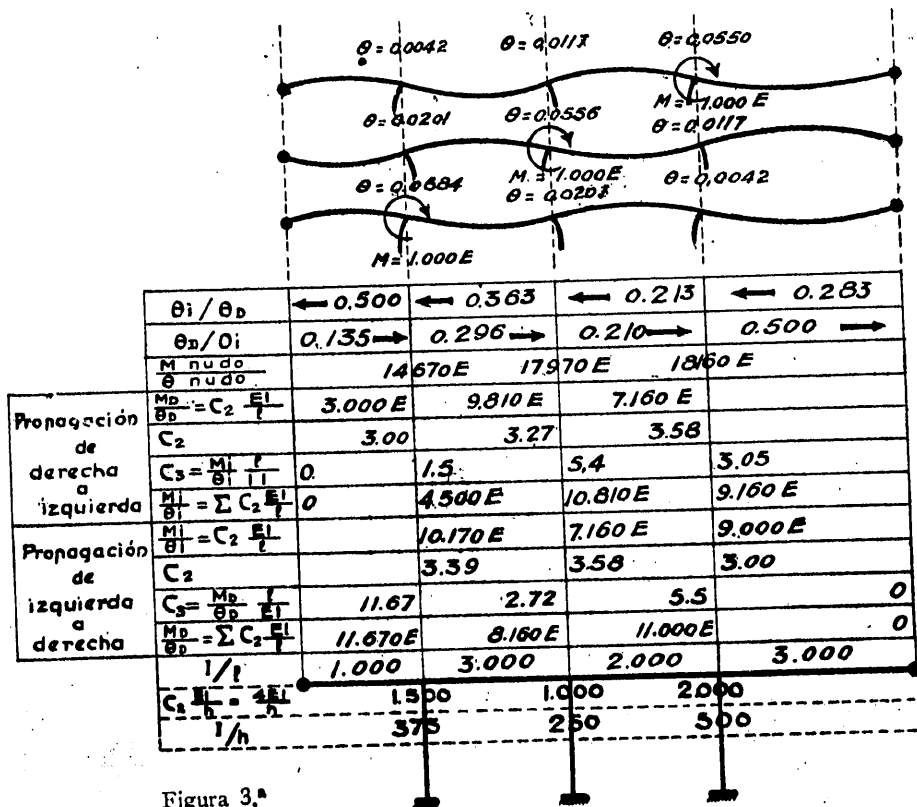 θ = 0.0042 θ = 0,0117 θ = 0.0550
M = 1.000 E
θ = 0.0201 θ = 0.0556 θ = 0.0117
M = 1.000 E
θ = 0.0684 θ = 0.0203 θ = 0.0042
M = 1.000 E
θi / θD ← 0.500 ← 0.363 ← 0.213 ← 0.283
θD / θi 0.135 → 0.296 → 0.210 → 0.500 →
M nudo / θ nudo 14.670 E 17.970 E 18.160 E
Propagación de derecha a izquierda
MD/θD = C2 EI/l 3.000 E 9.810 E 7.160 E
C2 3.00 3.27 3.58
C3 = Mi/θi l/EI 0. 1.5 5.4 3.05
Mi/θi = Σ C2 EI/l 0 4.500 E 10.810 E 9.160 E
Propagación de izquierda a derecha
Mi/θi = C2 EI/l 10.170 E 7.160 E 9.000 E
C2 3.39 3.58 3.00
C3 = MD/θD l/EI 11.67 2.72 5.5 0
MD/θD = Σ C2 EI/l 11.670 E 8.160 E 11.000 E 0
I/l 1.000 3.000 2.000 3.000
C2 EI/h = 4EI/h 1.500 1.000 2.000
I/h 375 250 500
Figura 3.ª